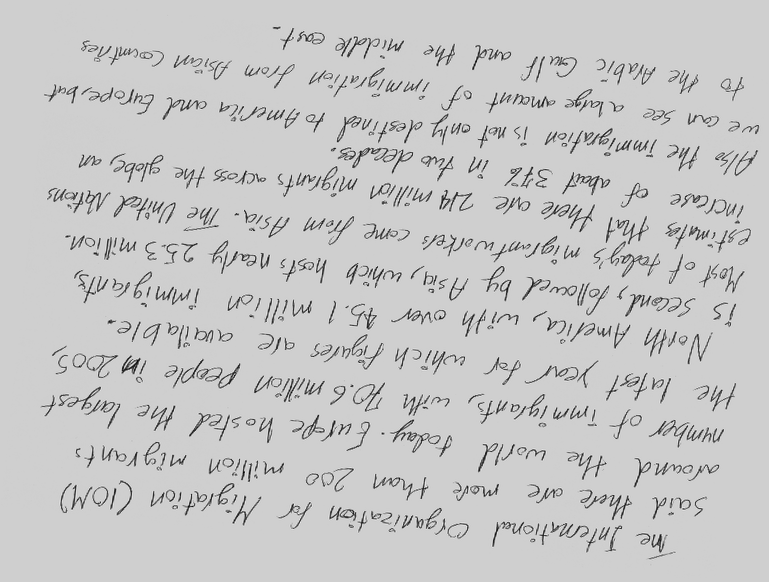 The International Organization for Migration (IOM)
said there are more than 200 million migrants
around the world today. Europe hosted the largest
number of immigrants, with 70.6 million people in 2005,
the latest year for which figures are available.
North America, with over 45.1 million immigrants,
is second, followed by Asia, which hosts nearly 25.3 million.
Most of today's migrant workers come from Asia. The United Nations
estimates that there are 214 million migrants across the globe, an
increase of about 37% in two decades.
Also the immigration is not only destined to America and Europe, but
we can see a large amount of immigration from Asian Countries
to the Arabic Gulf and the middle east.